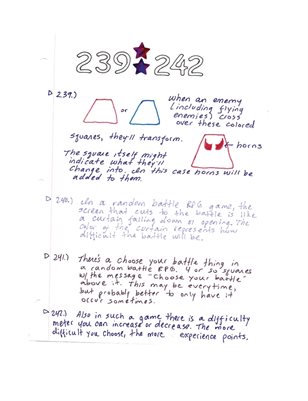 239 242
239.)
or
when an enemy
(including flying
enemies) cross
over these colored
squares, they'll transform.
← horns
The square itself might
indicate what they'll
change into. In this case horns will be
added to them.
240.) In a random battle RPG game, the
screen that cuts to the battle is like
a curtain falling down or opening. The
color of the curtain represents how
difficult the battle will be.
241.) There's a choose your battle thing in
a random battle RPG. 4 or so squares
w/ the message "Choose your battle"
above it. This may be everytime,
but probably better to only have it
occur sometimes.
242.) Also in such a game, there is a difficulty
meter you can increase or decrease. The more
difficult you choose, the more experience points.